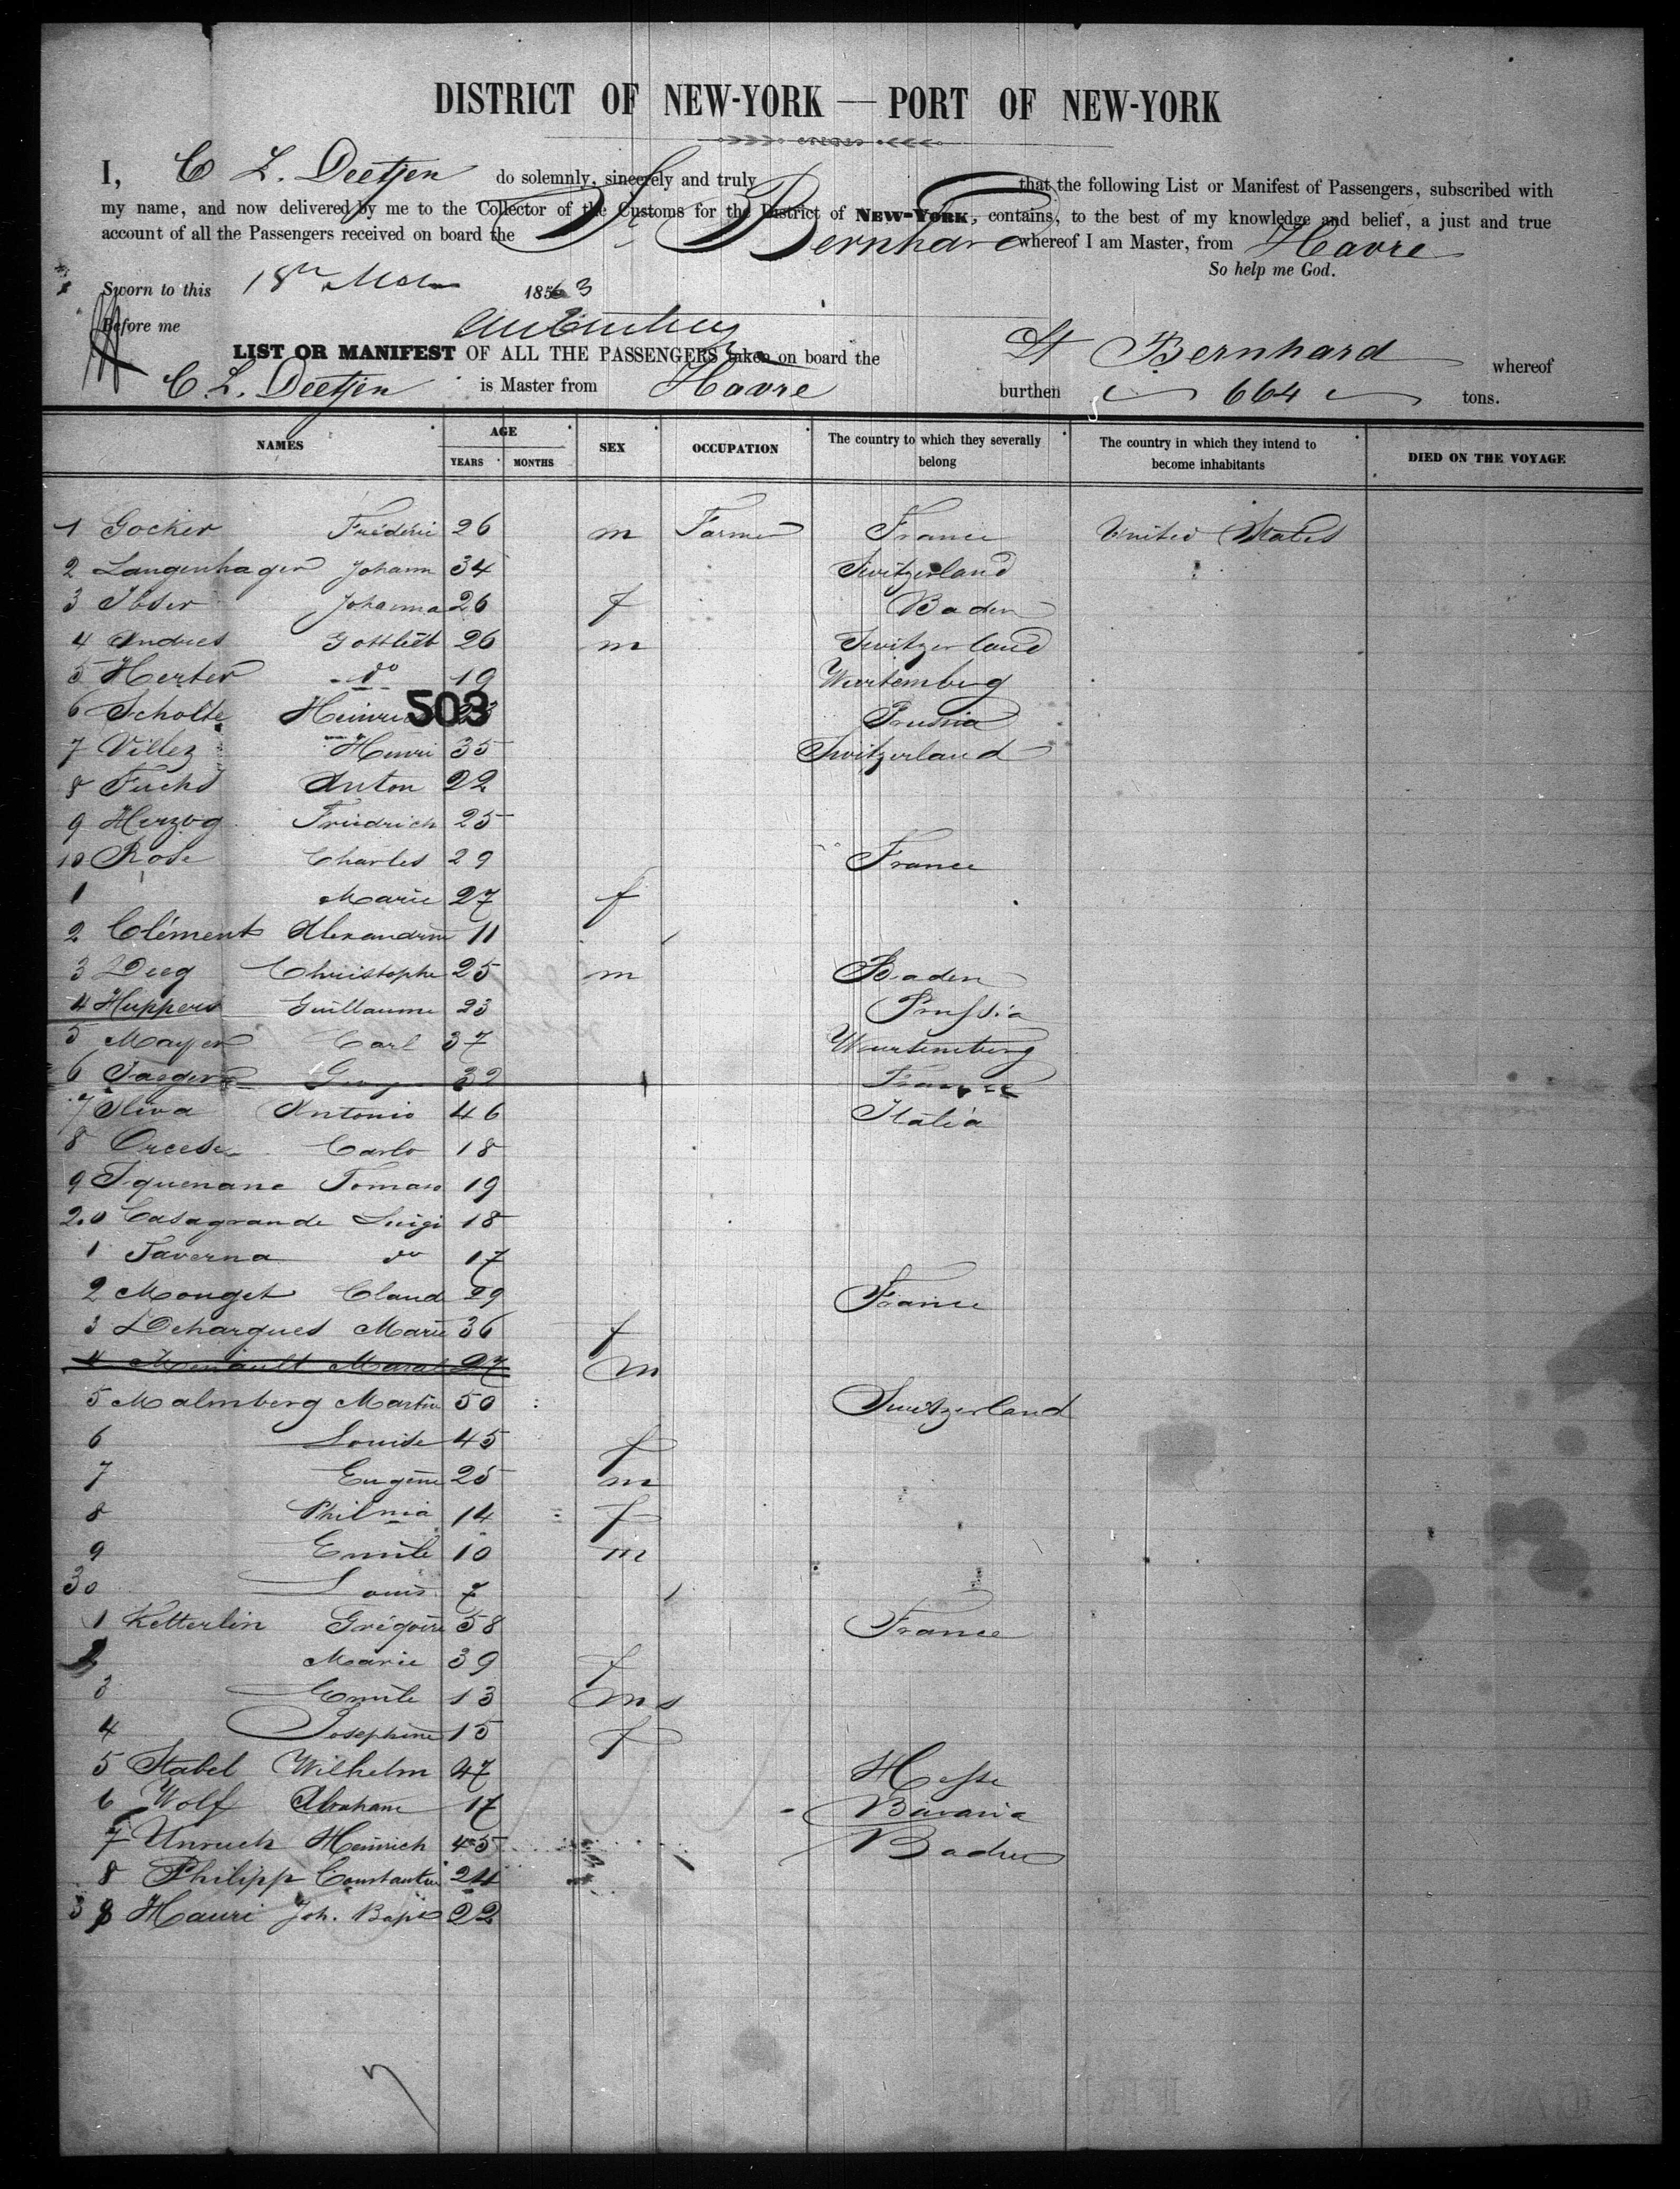 DISTRICT OF NEW-YORK — PORT OF NEW-YORK
I, C L. Deetjen do solemnly, sincerely and truly that the following List or Manifest of Passengers, subscribed with
my name, and now delivered by me to the Collector of the Customs for the District of NEW-YORK, contains, to the best of my knowledge and belief, a just and true
account of all the Passengers received on board the St Bernhard whereof I am Master, from Havre
So help me God.
Sworn to this 18th 1863
Before me
LIST OR MANIFEST OF ALL THE PASSENGERS taken on board the St Bernhard whereof
C. L. Deetjen is Master from Havre burthen 664 tons.
NAMES AGE YEARS MONTHS SEX OCCUPATION The country to which they severally belong The country in which they intend to become inhabitants DIED ON THE VOYAGE
1 Gocker Frédéric 26 m Farmer France United States
2 Langenhagen Johann 34 Switzerland
3 Ibser Johanna 26 f Baden
4 Andres Gottlieb 26 m Switzerland
5 Herter do 19 Wurtemberg
6 Scholte Heinrich 23 Prussia
503
7 Villez Henri 35 Switzerland
8 Fuchs Anton 22
9 Herzog Friedrich 25
10 Rose Charles 29 France
1 Marie 27 f
2 Clément Alexandrine 11
3 Deeg Christophe 25 m Baden
4 Huppers Guillaume 23 Prussia
5 Mayer Carl 37 Wurtemberg
6 Jaeger George 32 France
7 Oliva Antonio 46 Italia
8 Orcese Carlo 18
9 Tomaso 19
20 Casagrande Luigi 18
1 Taverna do 17
2 Monget Claude 29 France
3 Dehargues Marie 36 f
4 Menault 27 m
5 Malmberg Martin 50 Switzerland
6 Louise 45 f
7 Eugène 25 m
8 Philnia 14 f
9 Emile 10 m
30 Louis 7
1 Ketterlin Grégoire 58 France
2 Marie 39 f
3 Emile 13 m
4 Josephine 15 f
5 Stabel Wilhelm 47 Hesse
6 Wolf Abraham 17 Bavaria
7 Unruch Heinrich 45 Baden
8 Philipp Constantin 24
39 Hauri Joh. Bapt 22